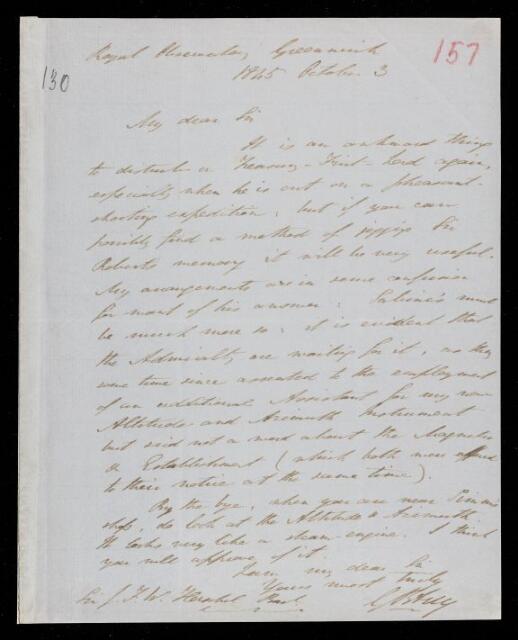 157
130
Royal Observatory, Greenwich
1845 October 3
My dear Sir
It is an awkward thing
to disturb a Treasury-First-Lord again,
especially when he is out on a pheasant-
shooting expedition: but if you can
possibly find a method of jogging Sir
Robert's memory it will be very useful.
My arrangements are in some confusion
for want of his answer: Sabine's must
be much more so: it is evident that
the Admiralty are waiting for it, as they
some time since assented to the employment
of an additional Assistant for my new
Altitude and Azimuth Instrument
but said not a word about the Magnetic
Establishment (which both were
to their notice at the same time).
By the bye, when you are near Simms's
shop, do look at the Altitude & Azimuth
It looks very like a steam-engine. I think
you will approve of it.
I am, my dear Sir
Yours most truly
G B Airy
Sir J. F. W. Herschel Bart